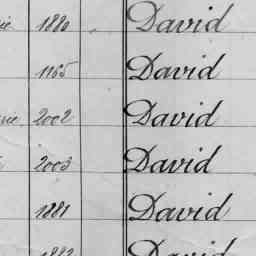 1880 David
1165 David
2002 David
2003 David
1881 David
1882 David